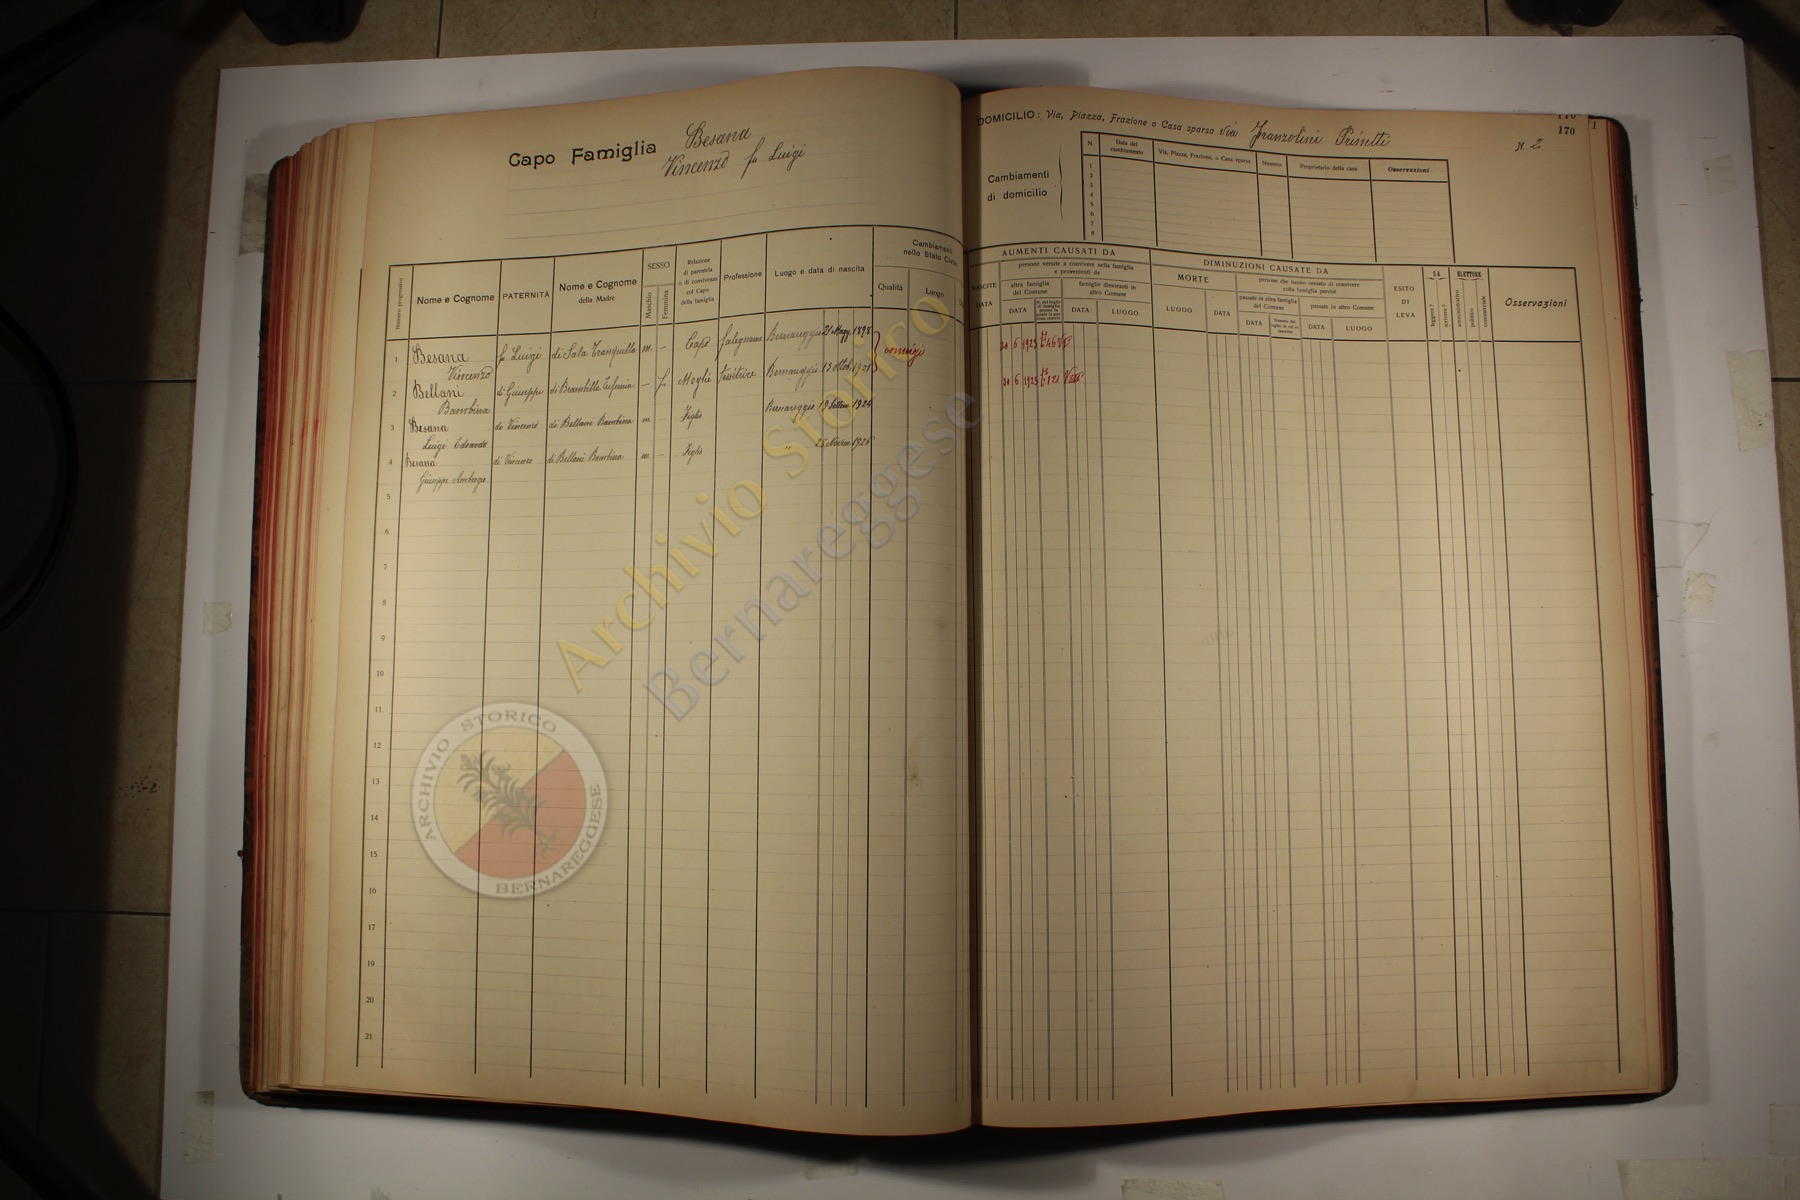 Capo Famiglia Besana
Vincenzo fu Luigi
DOMICILIO: Via, Piazza, Frazione o Casa sparsa via Franzolini Prinetti
N. 2
170
170
1
Cambiamenti
di domicilio
N. Data del cambiamento Via, Piazza, Frazione, o Casa sparsa Numero Proprietario della casa Osservazioni
1
2
3
4
5
6
7
8
Numero progressivo
Nome e Cognome
PATERNITÀ
Nome e Cognome
della Madre
SESSO
Maschio
Femmina
Relazione
di parentela
o di convivenza
col Capo
della famiglia
Professione
Luogo e data di nascita
Cambiamenti
nello Stato Civile
Qualità
Luogo
AUMENTI CAUSATI DA
NASCITE
DATA
persone venute a convivere nella famiglia
e provenienti da
altra famiglia
del Comune
DATA
famiglie dimoranti in
altro Comune
DATA
LUOGO
DIMINUZIONI CAUSATE DA
MORTE
LUOGO
DATA
persone che hanno cessato di convivere
colla famiglia perchè
passate in altra famiglia
del Comune
DATA
passate in altro Comune
DATA
LUOGO
ESITO
DI
LEVA
SA
leggere?
scrivere?
ELETTORE
amministrativo
politico
commerciale
Osservazioni
1 Besana fu Luigi di Sala Tranquilla m. – Capo falegname Bernareggio 21 Magg. 1898 coniugi 30 6 1923
Vincenzo
2 Bellani di Giuseppe di Brambilla Eufemia – f. Moglie Tessitrice Bernareggio 13 Ottob. 1901 30 6 1923
Bambina
3 Besana di Vincenzo di Bellani Bambina m – Figlio Bernareggio 19 Settem. 1924
Luigi Edoardo
4 Besana di Vincenzo di Bellani Bambina m – Figlio „ 28 Novem. 1926
Giuseppe Ambrogio
5
6
7
8
9
10
11
12
13
14
15
16
17
19
20
21
Archivio Storico
Bernareggese
ARCHIVIO STORICO
BERNAREGGESE